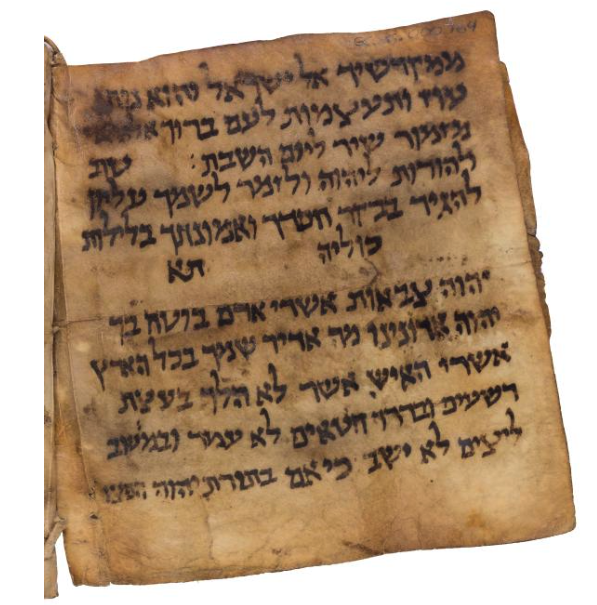 ממקדשיך אל ישראל הוא נותן
עוז ותעצמות לעם ברוך אלהים
מזמור שיר ליום השבת : טוב
להודות ליהוה ולזמר לשמך עליון
להגיד בבקר חסדך ואמונתך בלילות
כוליה
תא
יהוה צבאות אשרי אדם בוטח בך
יהוה אדונינו מה אדיר שמך בכל הארץ
אשרי האיש אשר לא הלך בעצת
רשעים ובדרך חטאים לא עמד ובמושב
ליצים לא ישב כי אם בתורת יהוה חפצו